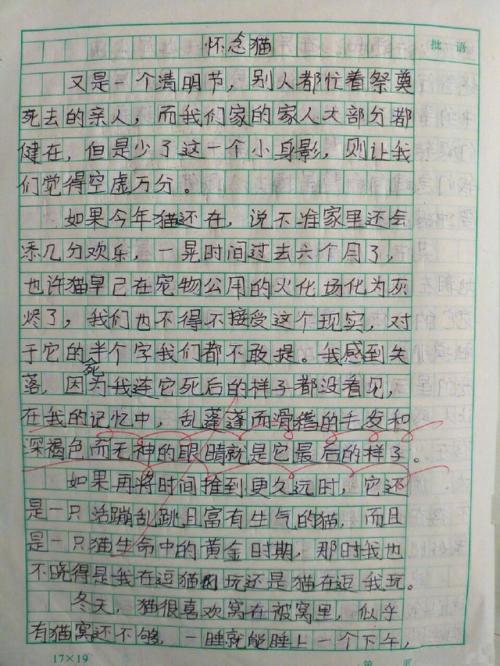 怀念猫
批语
又是一个清明节，别人都忙着祭奠
死去的亲人，而我们家的家人大部分都
健在，但是少了这一个小身影，则让我
们觉得空虚万分。
如果今年猫还在，说不准家里还会
添几分欢乐，一晃时间过去六个月了，
也许猫早已在宠物公用的火化场化为灰
烬了，我们也不得不接受这个现实，对
于它的半个字我们都不敢提。我感到失
死
落，因为我连它死后的样子都没看见，
在我的记忆中，乱蓬蓬而滑稽的毛发和
深褐色而无神的眼睛就是它最后的样子。
如果再将时间推到更久远时，它还
是一只活蹦乱跳且富有生气的猫，而且
是一只猫生命中的黄金时期，那时我也
不晓得是我在逗猫玩还是猫在逗我玩。
冬天，猫很喜欢窝在被窝里，似乎
有猫窝还不够，一睡就能睡上一个下午，
17×19
第 页